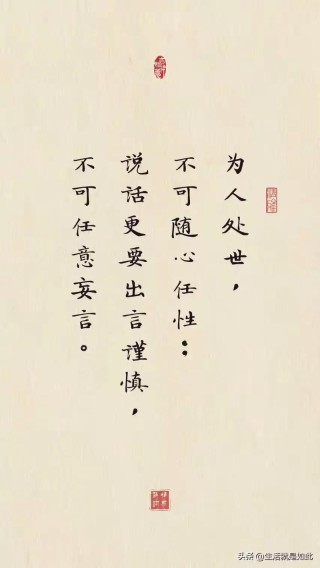 为人处世，
不可随心任性；
说话更要出言谨慎，
不可任意妄言。
头条 @生活就是如此